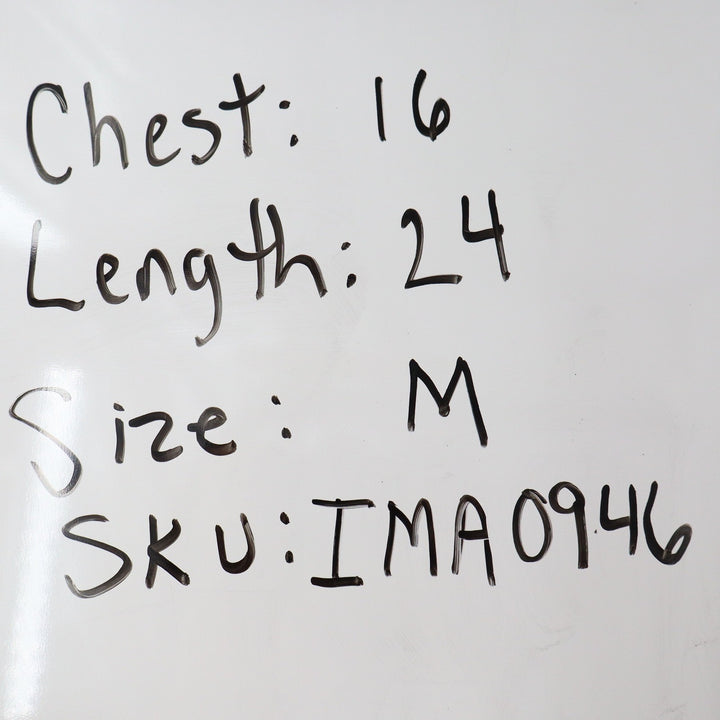 Chest: 16
Length: 24
Size: M
SKU: IMA0946